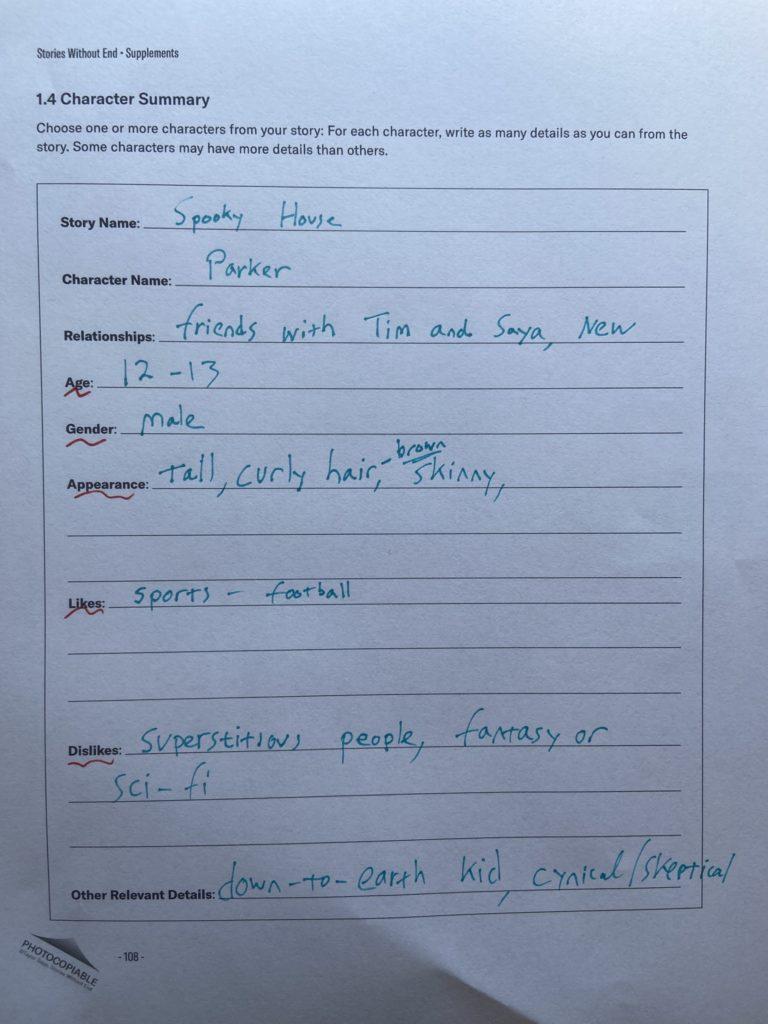 Stories Without End • Supplements
1.4 Character Summary
Choose one or more characters from your story: For each character, write as many details as you can from the
story. Some characters may have more details than others.
Story Name: Spooky House
Character Name: Parker
Relationships: friends with Tim and Saya, New
Age: 12-13
Gender: male
Appearance: Tall, curly hair, - brown skinny,
Likes: sports - football
Dislikes: superstitious people, fantasy or
sci-fi
Other Relevant Details: down-to-earth kid, cynical/skeptical
PHOTOCOPIABLE
Stories Without End
- 108 -